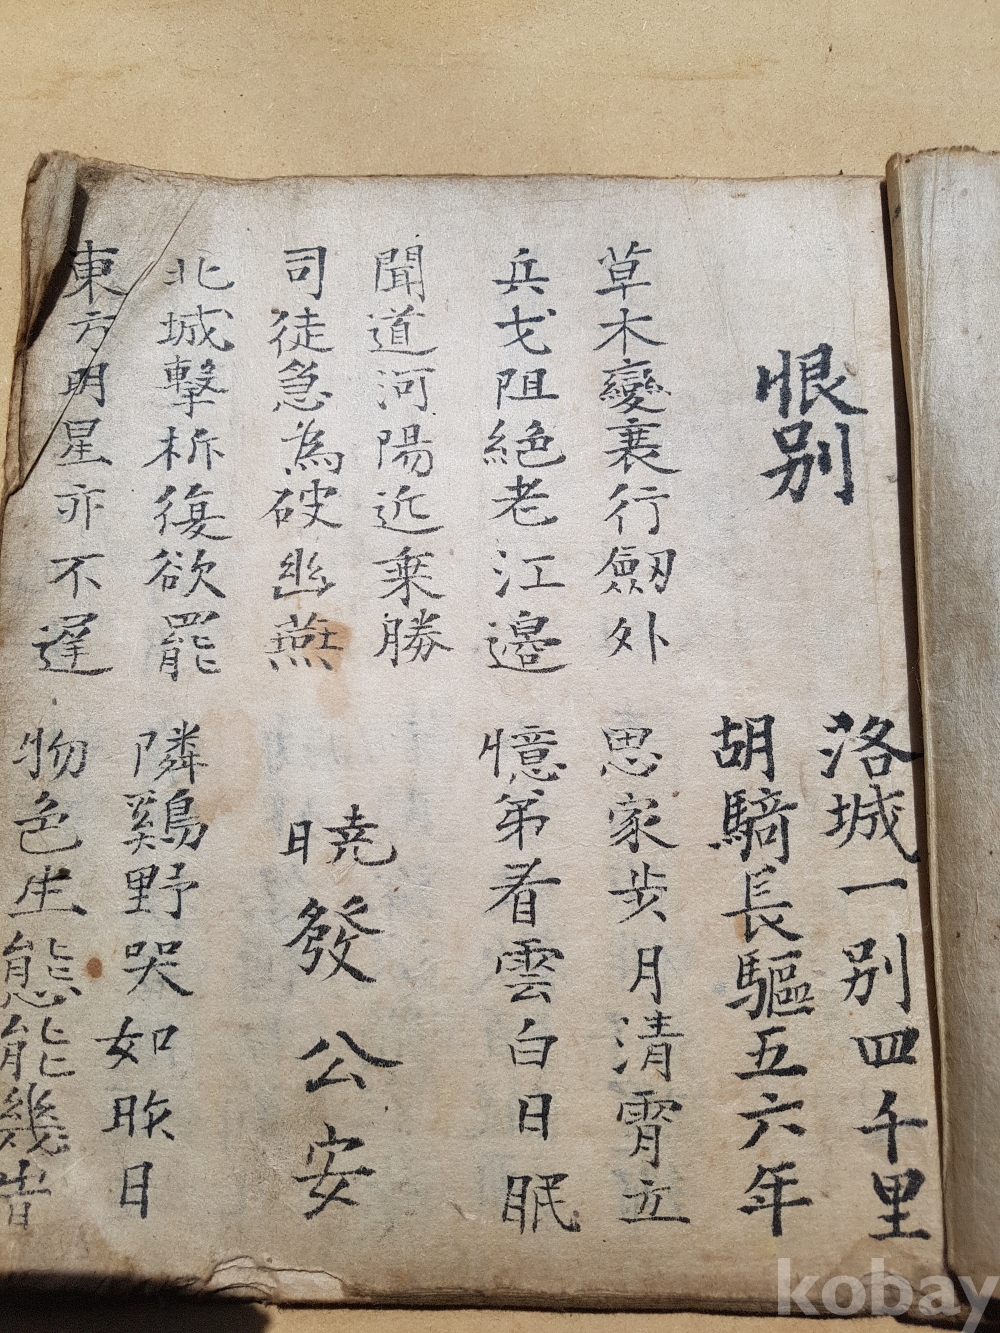 恨别
洛城一别四千里
胡騎長驅五六年
草木變衰行劒外
兵戈阻絶老江邊
思家步月清霄立
憶弟看雲白日眠
聞道河陽近乗勝
司徒急為破幽燕
曉發公安
北城擊柝復欲罷
東方明星亦不遲
隣鷄野哭如昨日
物色生態能幾旹
kobay